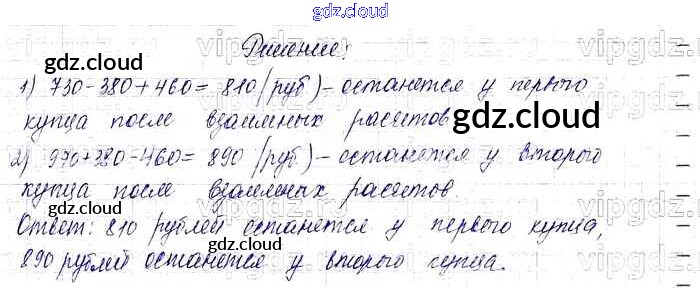 gdz.cloud
Решение:
1) 730-380+460= 810 (руб) - останется у первого
купца после взаимных расчетов
gdz.cloud
gdz.cloud
2) 970+380-460= 890 (руб) - останется у второго
купца после взаимных расчетов
gdz.cloud
Ответ: 810 рублей останется у первого купца,
890 рублей останется у второго купца.
gdz.cloud
gdz.cloud
vipgdz.com